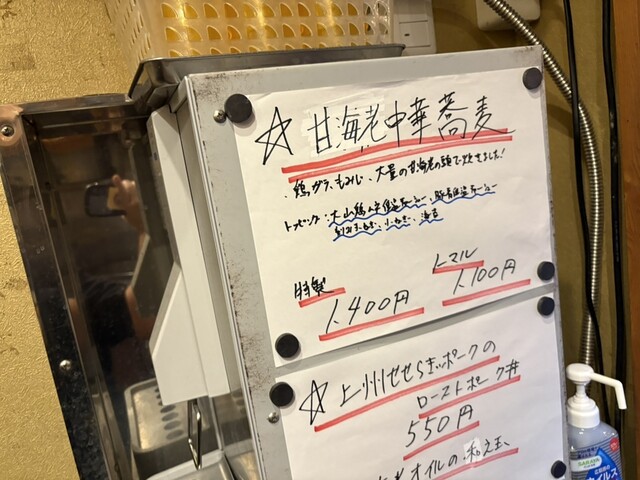 ☆甘海老中華蕎麦
、鶏ガラ、もみじ、大量の甘海老の頭で炊きました!
トッピング:大山鶏の低温チャーシュー、豚肩低温チャーシュー
刻み玉ねぎ、小ねぎ、海苔
特製 1,400円
ノーマル 1,100円
☆上州せせらぎポークの
ローストポーク丼
550円
オイルの和え玉
SARAYA